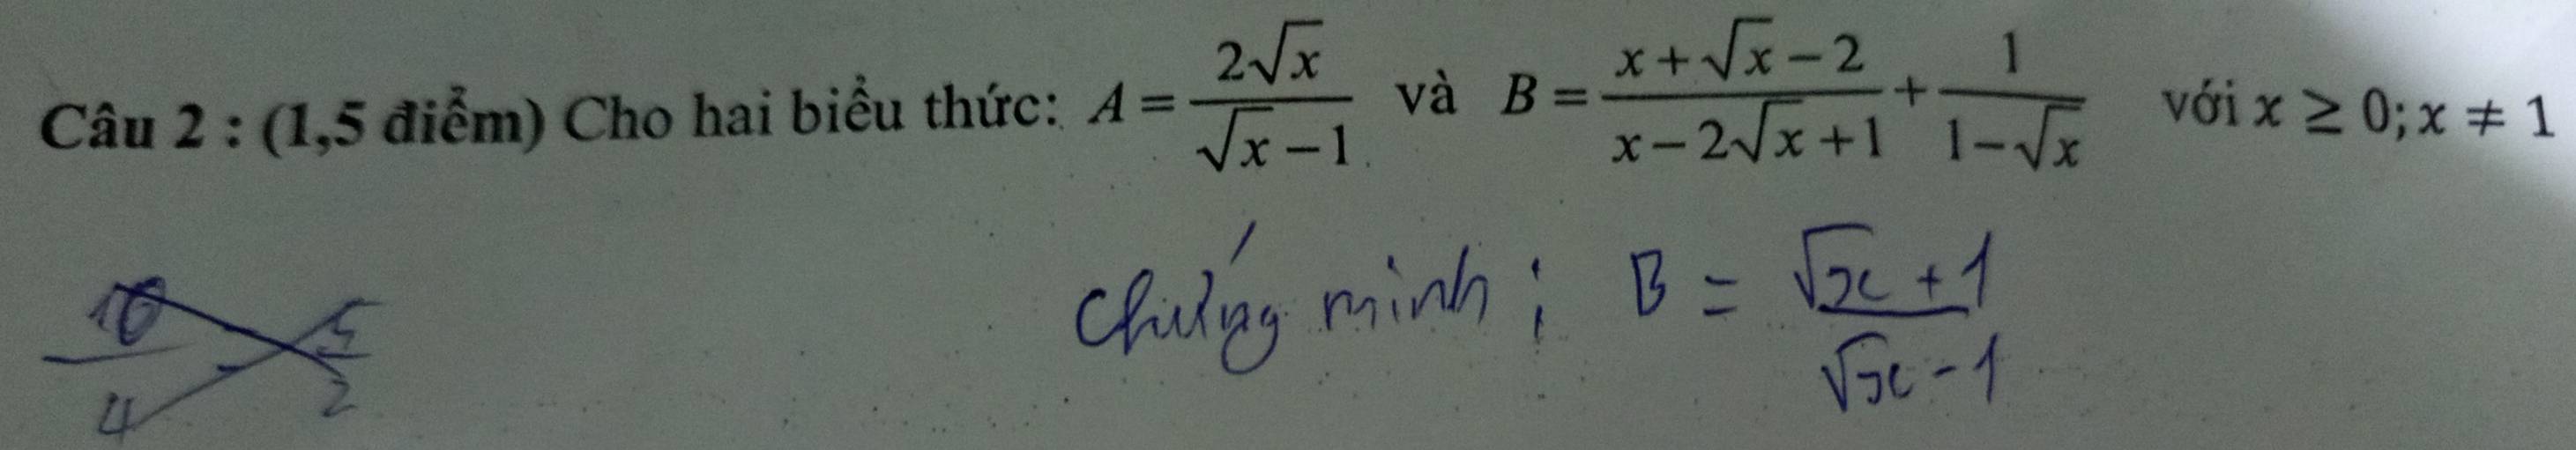 Câu 2 : (1,5 điểm) Cho hai biểu thức: A = \frac{2\sqrt{x}}{\sqrt{x}-1} và B = \frac{x+\sqrt{x}-2}{x-2\sqrt{x}+1} + \frac{1}{1-\sqrt{x}} với x ≥ 0; x ≠ 1
Chứng minh : B = \frac{\sqrt{x}+1}{\sqrt{x}-1}
\frac{10}{4} \frac{5}{2}